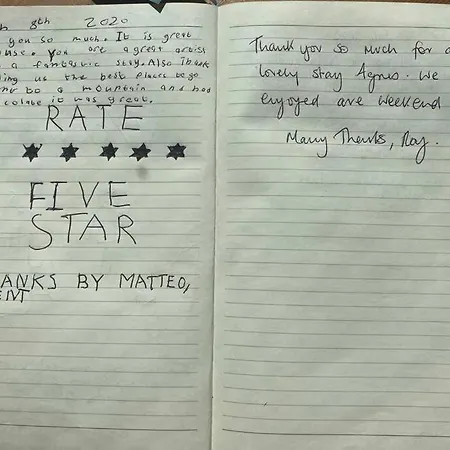 h 8th 2020
you so much. It is great
use. You are a great artist
a fantastic stay. Also Thank
ling us the best places to go
to a mountain and had
colate it was great.
RATE
★ ★ ★ ★ ★
FIVE
STAR
ANKS BY MATTEO,
ENT
Thank you so much for a
lovely stay Agnus. We
enjoyed are weekend
Many Thanks, Roy.